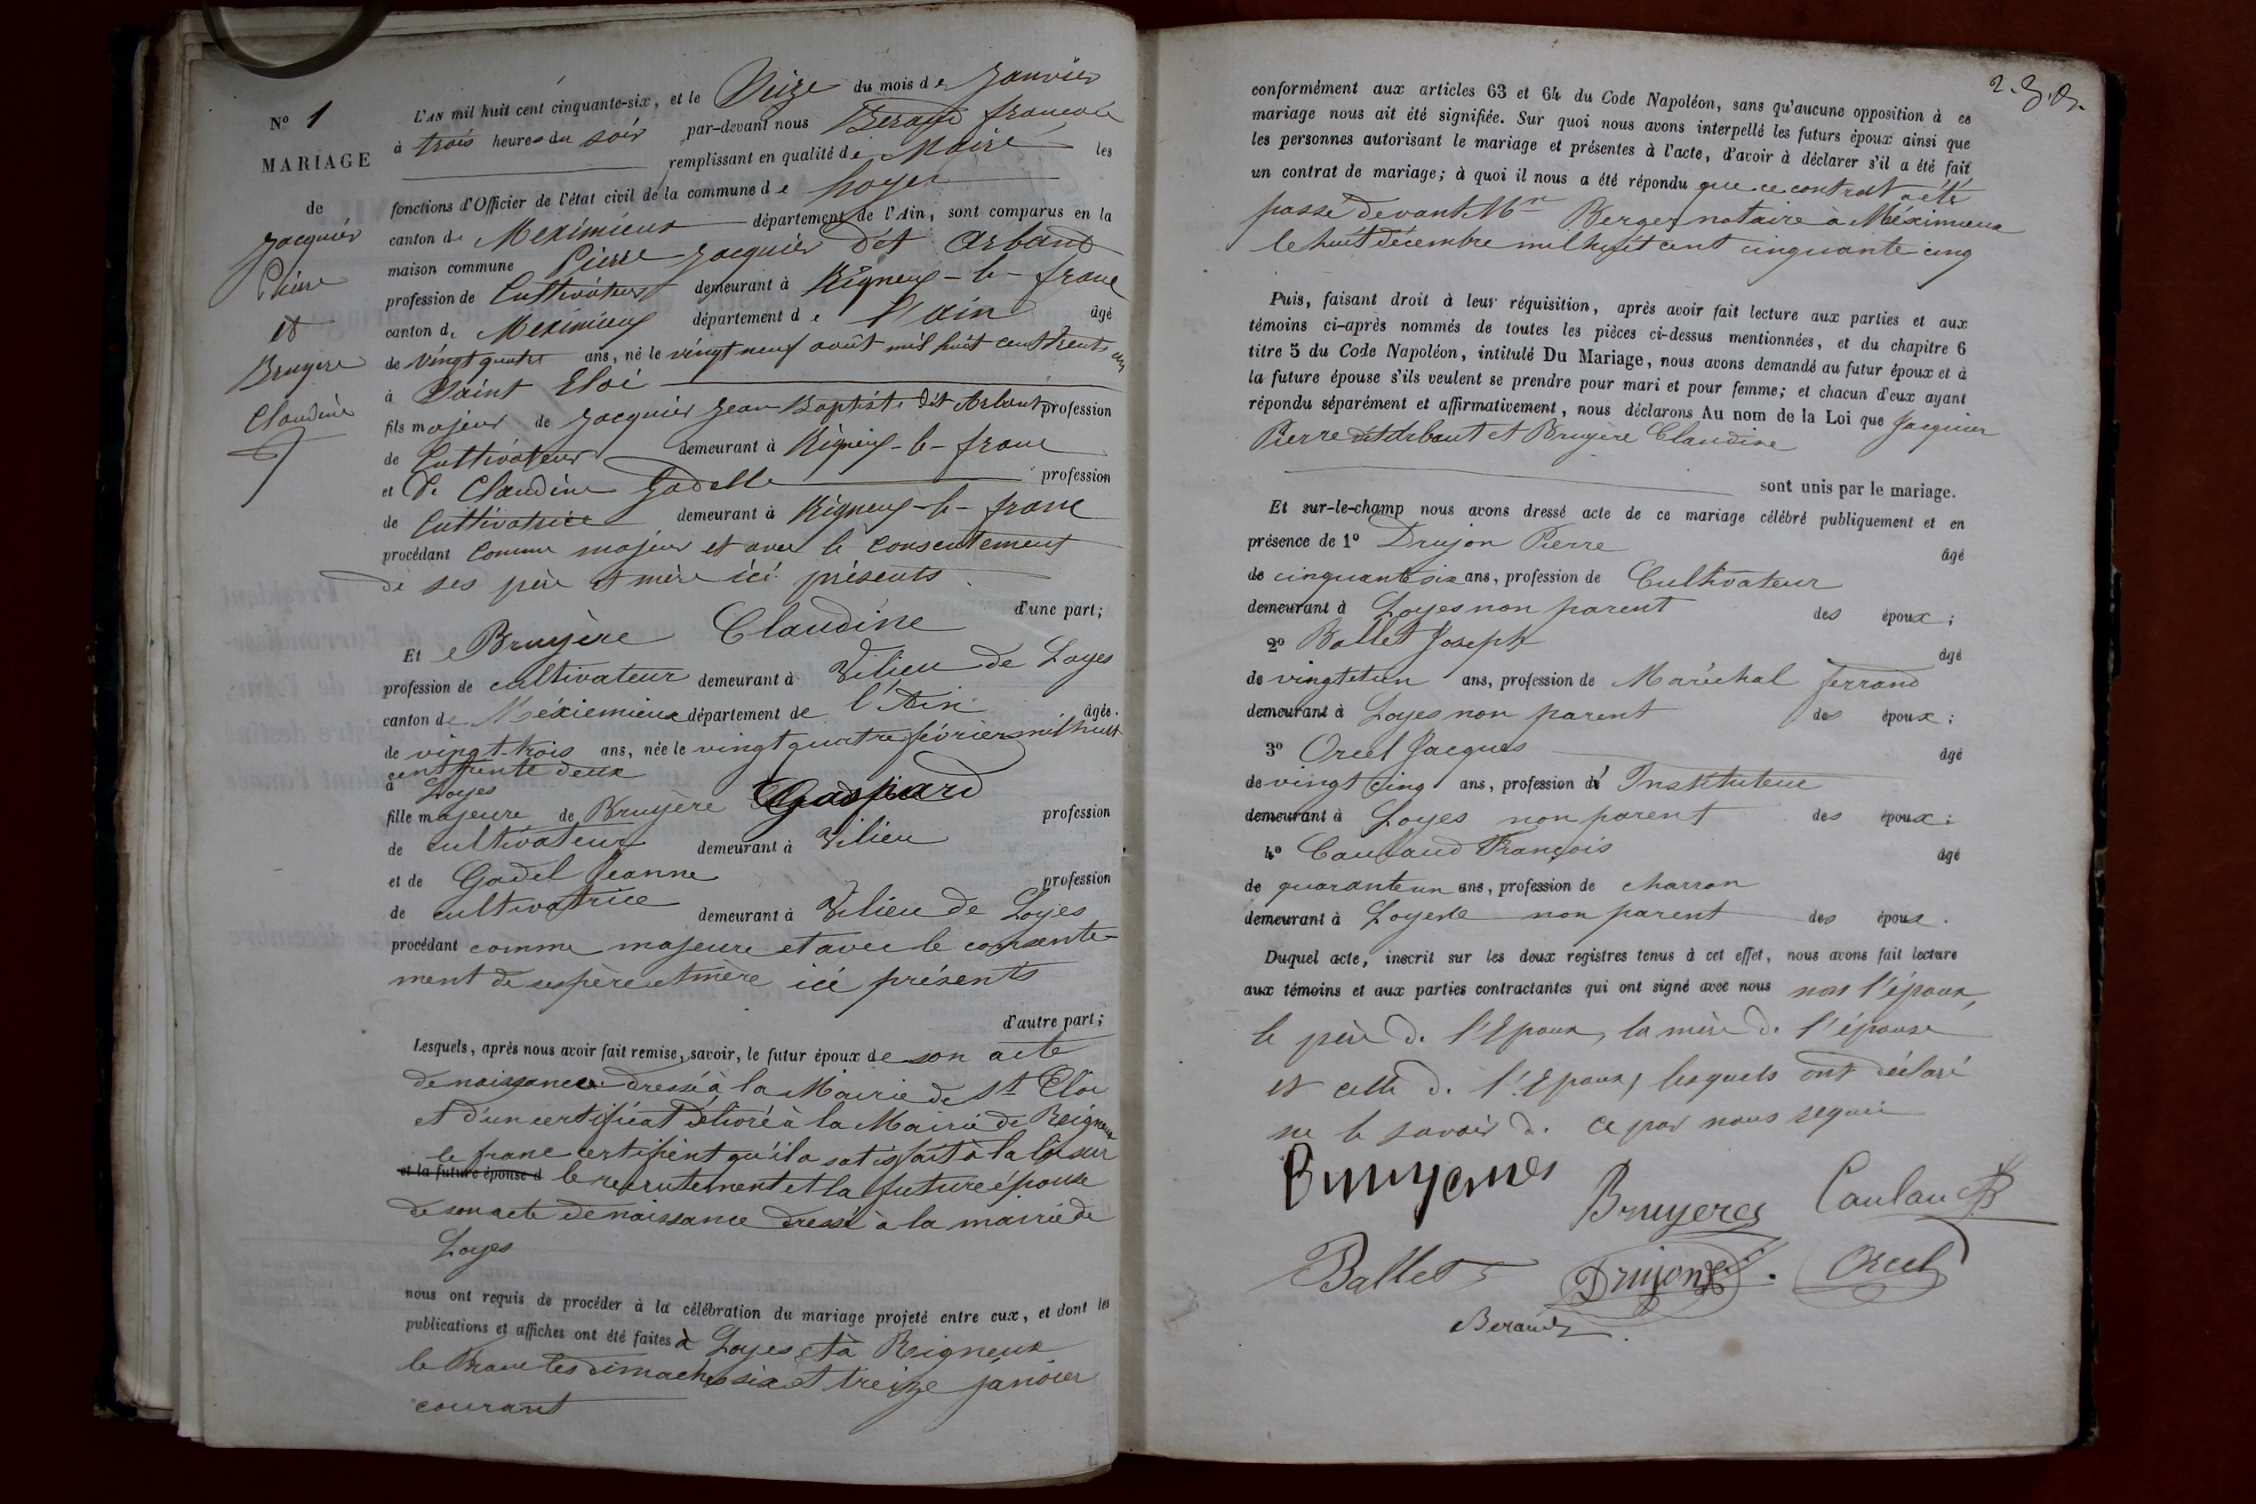 N° 1
MARIAGE
de
Jacquier
Pierre
et
Bruyere
Claudine
L'AN mil huit cent cinquante-six, et le Seize du mois de Janvier
à trois heures du soir par-devant nous Beraud francois
remplissant en qualité de Maire les
fonctions d'Officier de l'état civil de la commune de Loyes
canton de Meximieux département de l'Ain, sont comparus en la
maison commune Pierre Jacquier dit Arbant
profession de Cultivateur demeurant à Rigneux-le-franc
canton de Meximieux département de l'ain âgé
de vingt quatre ans, né le vingt neuf août mil huit cent trente un
à Saint Eloi
fils majeur de Jacquier Jean Baptiste dit Arbant profession
de Cultivateur demeurant à Rigneux-le-franc
et de Claudine Gadelle profession
de Cultivatrice demeurant à Rigneux-le-franc
procédant Comme majeur et avec le Consentement
de ses père et mère ici présents
d'une part;
Et Bruyère Claudine
profession de cultivateur demeurant à Vilieu de Loyes
canton de Méxiemieux département de l'Ain âgée
de vingt-trois ans, née le vingt quatre février mil huit
cent trente deux
à Loyes
fille majeure de Bruyère Gaspard profession
de cultivateur demeurant à Vilieu
et de Gadel Jeanne profession
de cultivatrice demeurant à Vilieu de Loyes
procédant comme majeure et avec le consente-
ment de ses père et mère ici présents
d'autre part;
Lesquels, après nous avoir fait remise, savoir, le futur époux de son acte
de naissance dressé à la Mairie de St Eloi
et d'un certificat délivré à la Mairie de Reigneux
le franc certifient qu'il a satisfait à la loi sur
et la future épouse d le recrutement et la future épouse
de son acte de naissance dressé à la mairie de
Loyes
nous ont requis de procéder à la célébration du mariage projeté entre eux, et dont les
publications et affiches ont été faites à Loyes et à Reigneux
le Franc les dimaches six et treize janvier
courant
2. g. B.
conformément aux articles 63 et 64 du Code Napoléon, sans qu'aucune opposition à ce
mariage nous ait été signifiée. Sur quoi nous avons interpellé les futurs époux ainsi que
les personnes autorisant le mariage et présentes à l'acte, d'avoir à déclarer s'il a été fait
un contrat de mariage; à quoi il nous a été répondu que ce contrat a été
passé devant Mre Berger notaire à Méximieux
le huit décembre mil huit cent cinquante cinq
Puis, faisant droit à leur réquisition, après avoir fait lecture aux parties et aux
témoins ci-après nommés de toutes les pièces ci-dessus mentionnées, et du chapitre 6
titre 5 du Code Napoléon, intitulé Du Mariage, nous avons demandé au futur époux et à
la future épouse s'ils veulent se prendre pour mari et pour femme; et chacun d'eux ayant
répondu séparément et affirmativement, nous déclarons Au nom de la Loi que Jacquier
Pierre dit Arbant et Bruyère Claudine
sont unis par le mariage.
Et sur-le-champ nous avons dressé acte de ce mariage célébré publiquement et en
présence de 1° Drujon Pierre âgé
de cinquante six ans, profession de Cultivateur
demeurant à Loyes non parent des époux;
2° Ballet Joseph âgé
de vingt et un ans, profession de Maréchal ferrand
demeurant à Loyes non parent des époux;
3° Orcel Jacques âgé
de vingt cinq ans, profession d'Instituteur
demeurant à Loyes non parent des époux;
4° Caulaud François âgé
de quarante un ans, profession de charron
demeurant à Loyes non parent des époux.
Duquel acte, inscrit sur les deux registres tenus à cet effet, nous avons fait lecture
aux témoins et aux parties contractantes qui ont signé avec nous non l'époux,
le père de l'Epoux, la mère de l'épouse
et celle de l'Epoux, lesquels ont déclaré
ne le savoir de ce par nous requis
Bruyeres
Bruyeres Caulaud
Ballet Drujon Orcel
Beraud